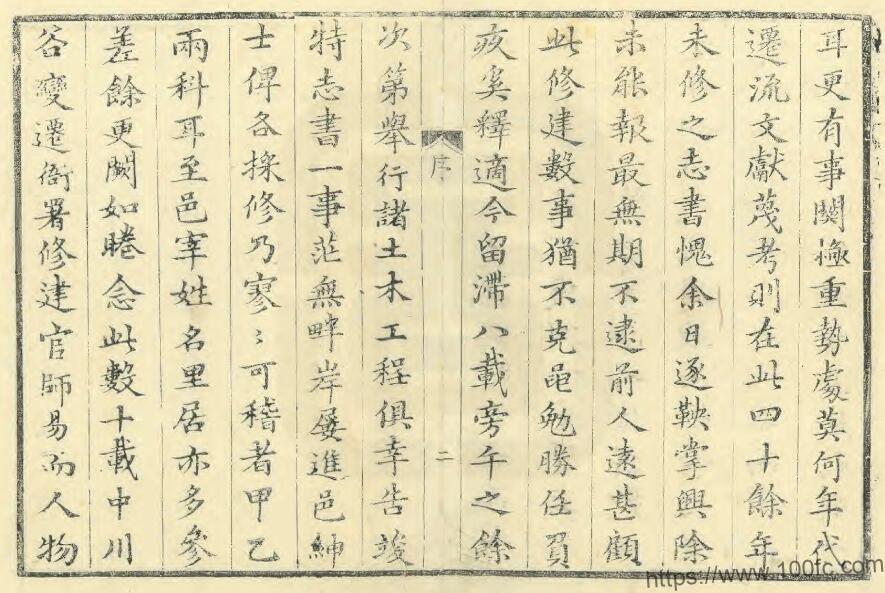 耳更有事關極重勢處莫何年代
遷流文獻蔑考則在此四十餘年
未修之志書愧余日逐鞅掌興除
未能報最無期不逮前人遠甚顧
此修建數事猶不克黽勉勝任負
疚奚釋適今留滯八載旁午之餘
序
二
次第舉行諸土木工程俱幸告竣
特志書一事茫無畔岸屢進邑紳
士俾各採修乃寥〻可稽者甲乙
兩科耳至邑宰姓名里居亦多參
差餘更闕如睠念此數十載中川
谷變遷衙署修建官師易而人物
https://www.100fc.com